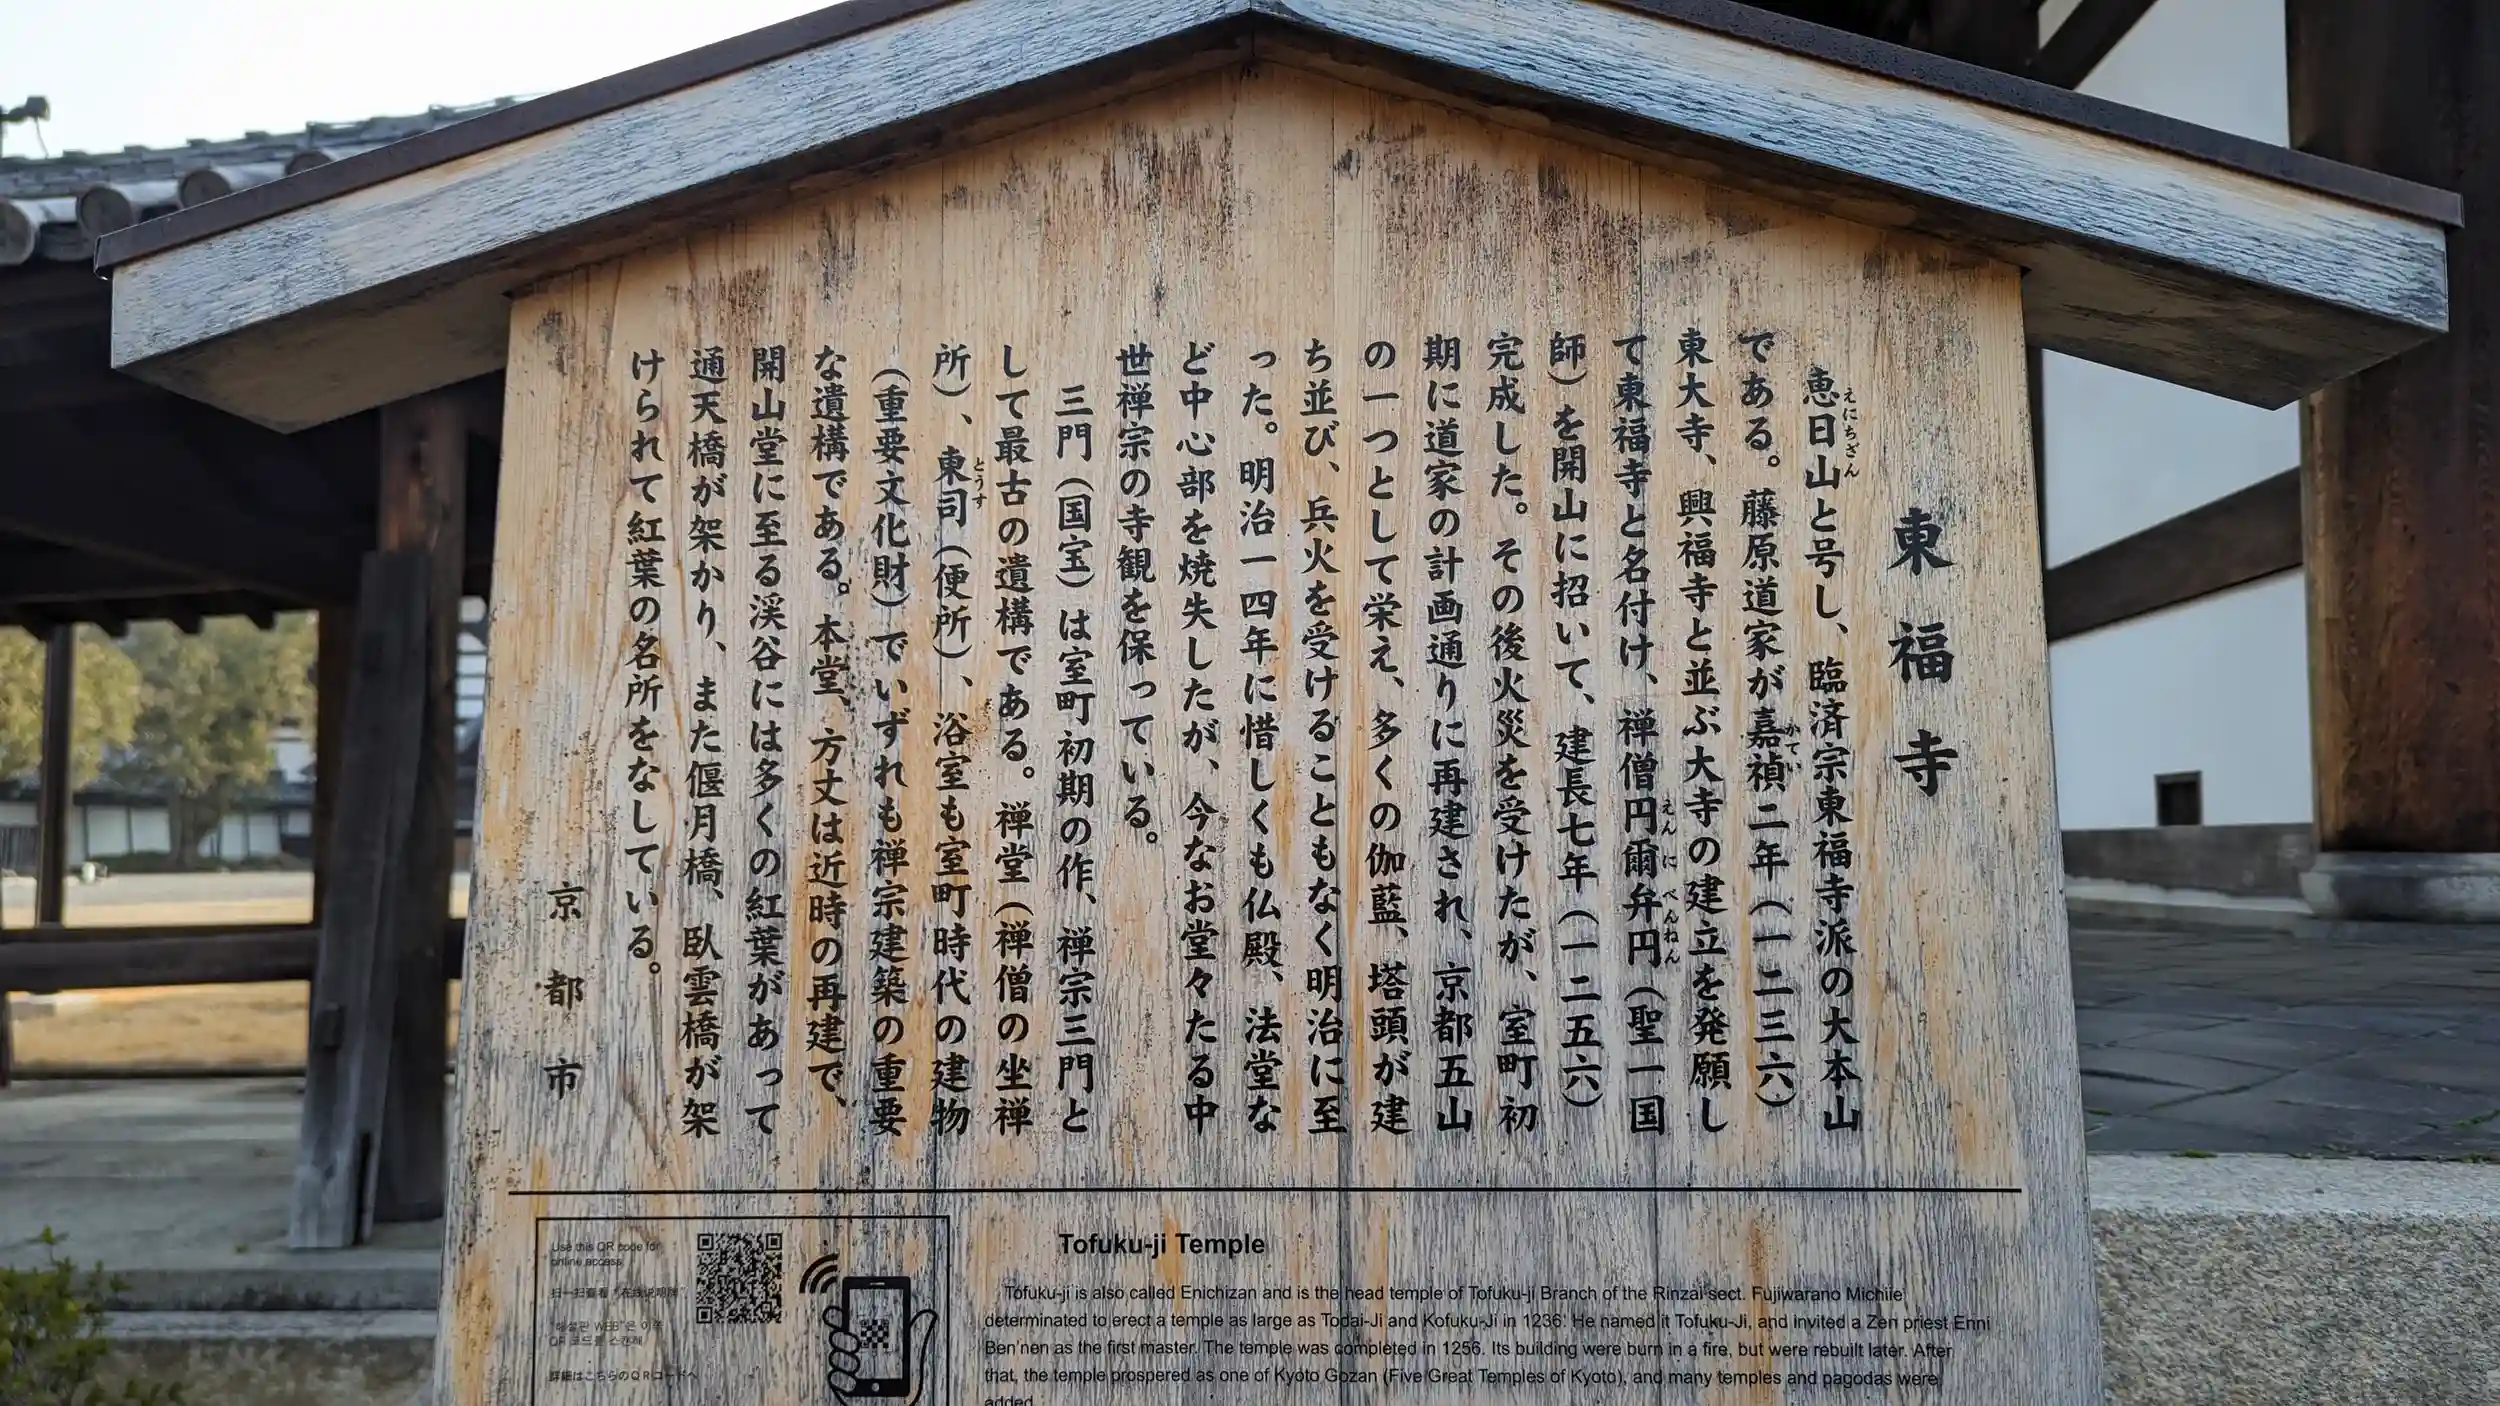 東福寺
恵日山と号し、臨済宗東福寺派の大本山
えにちざん
である。藤原道家が嘉禎二年(一二三六)
かてい
東大寺、興福寺と並ぶ大寺の建立を発願し
て東福寺と名付け、禅僧円爾弁円(聖一国
えんに べんねん
師)を開山に招いて、建長七年(一二五六)
完成した。その後火災を受けたが、室町初
期に道家の計画通りに再建され、京都五山
の一つとして栄え、多くの伽藍、塔頭が建
ち並び、兵火を受けることもなく明治に至
った。明治一四年に惜しくも仏殿、法堂な
ど中心部を焼失したが、今なお堂々たる中
世禅宗の寺観を保っている。
三門(国宝)は室町初期の作、禅宗三門と
して最古の遺構である。禅堂(禅僧の坐禅
所)、東司(便所)、浴室も室町時代の建物
とうす
(重要文化財)でいずれも禅宗建築の重要
な遺構である。本堂、方丈は近時の再建で、
開山堂に至る渓谷には多くの紅葉があって
通天橋が架かり、また偃月橋、臥雲橋が架
けられて紅葉の名所をなしている。
京都市
Use this QR code for
online access
扫一扫查看“在线说明牌”
"해설판 WEB"은 이쪽
QR 코드를 스캔해
詳細はこちらのQRコードへ
Tofuku-ji Temple
Tofuku-ji is also called Enichizan and is the head temple of Tofuku-ji Branch of the Rinzai sect. Fujiwarano Michiie
determinated to erect a temple as large as Todai-Ji and Kofuku-Ji in 1236. He named it Tofuku-Ji, and invited a Zen priest Enni
Ben'nen as the first master. The temple was completed in 1256. Its building were burn in a fire, but were rebuilt later. After
that, the temple prospered as one of Kyoto Gozan (Five Great Temples of Kyoto), and many temples and pagodas were
added.